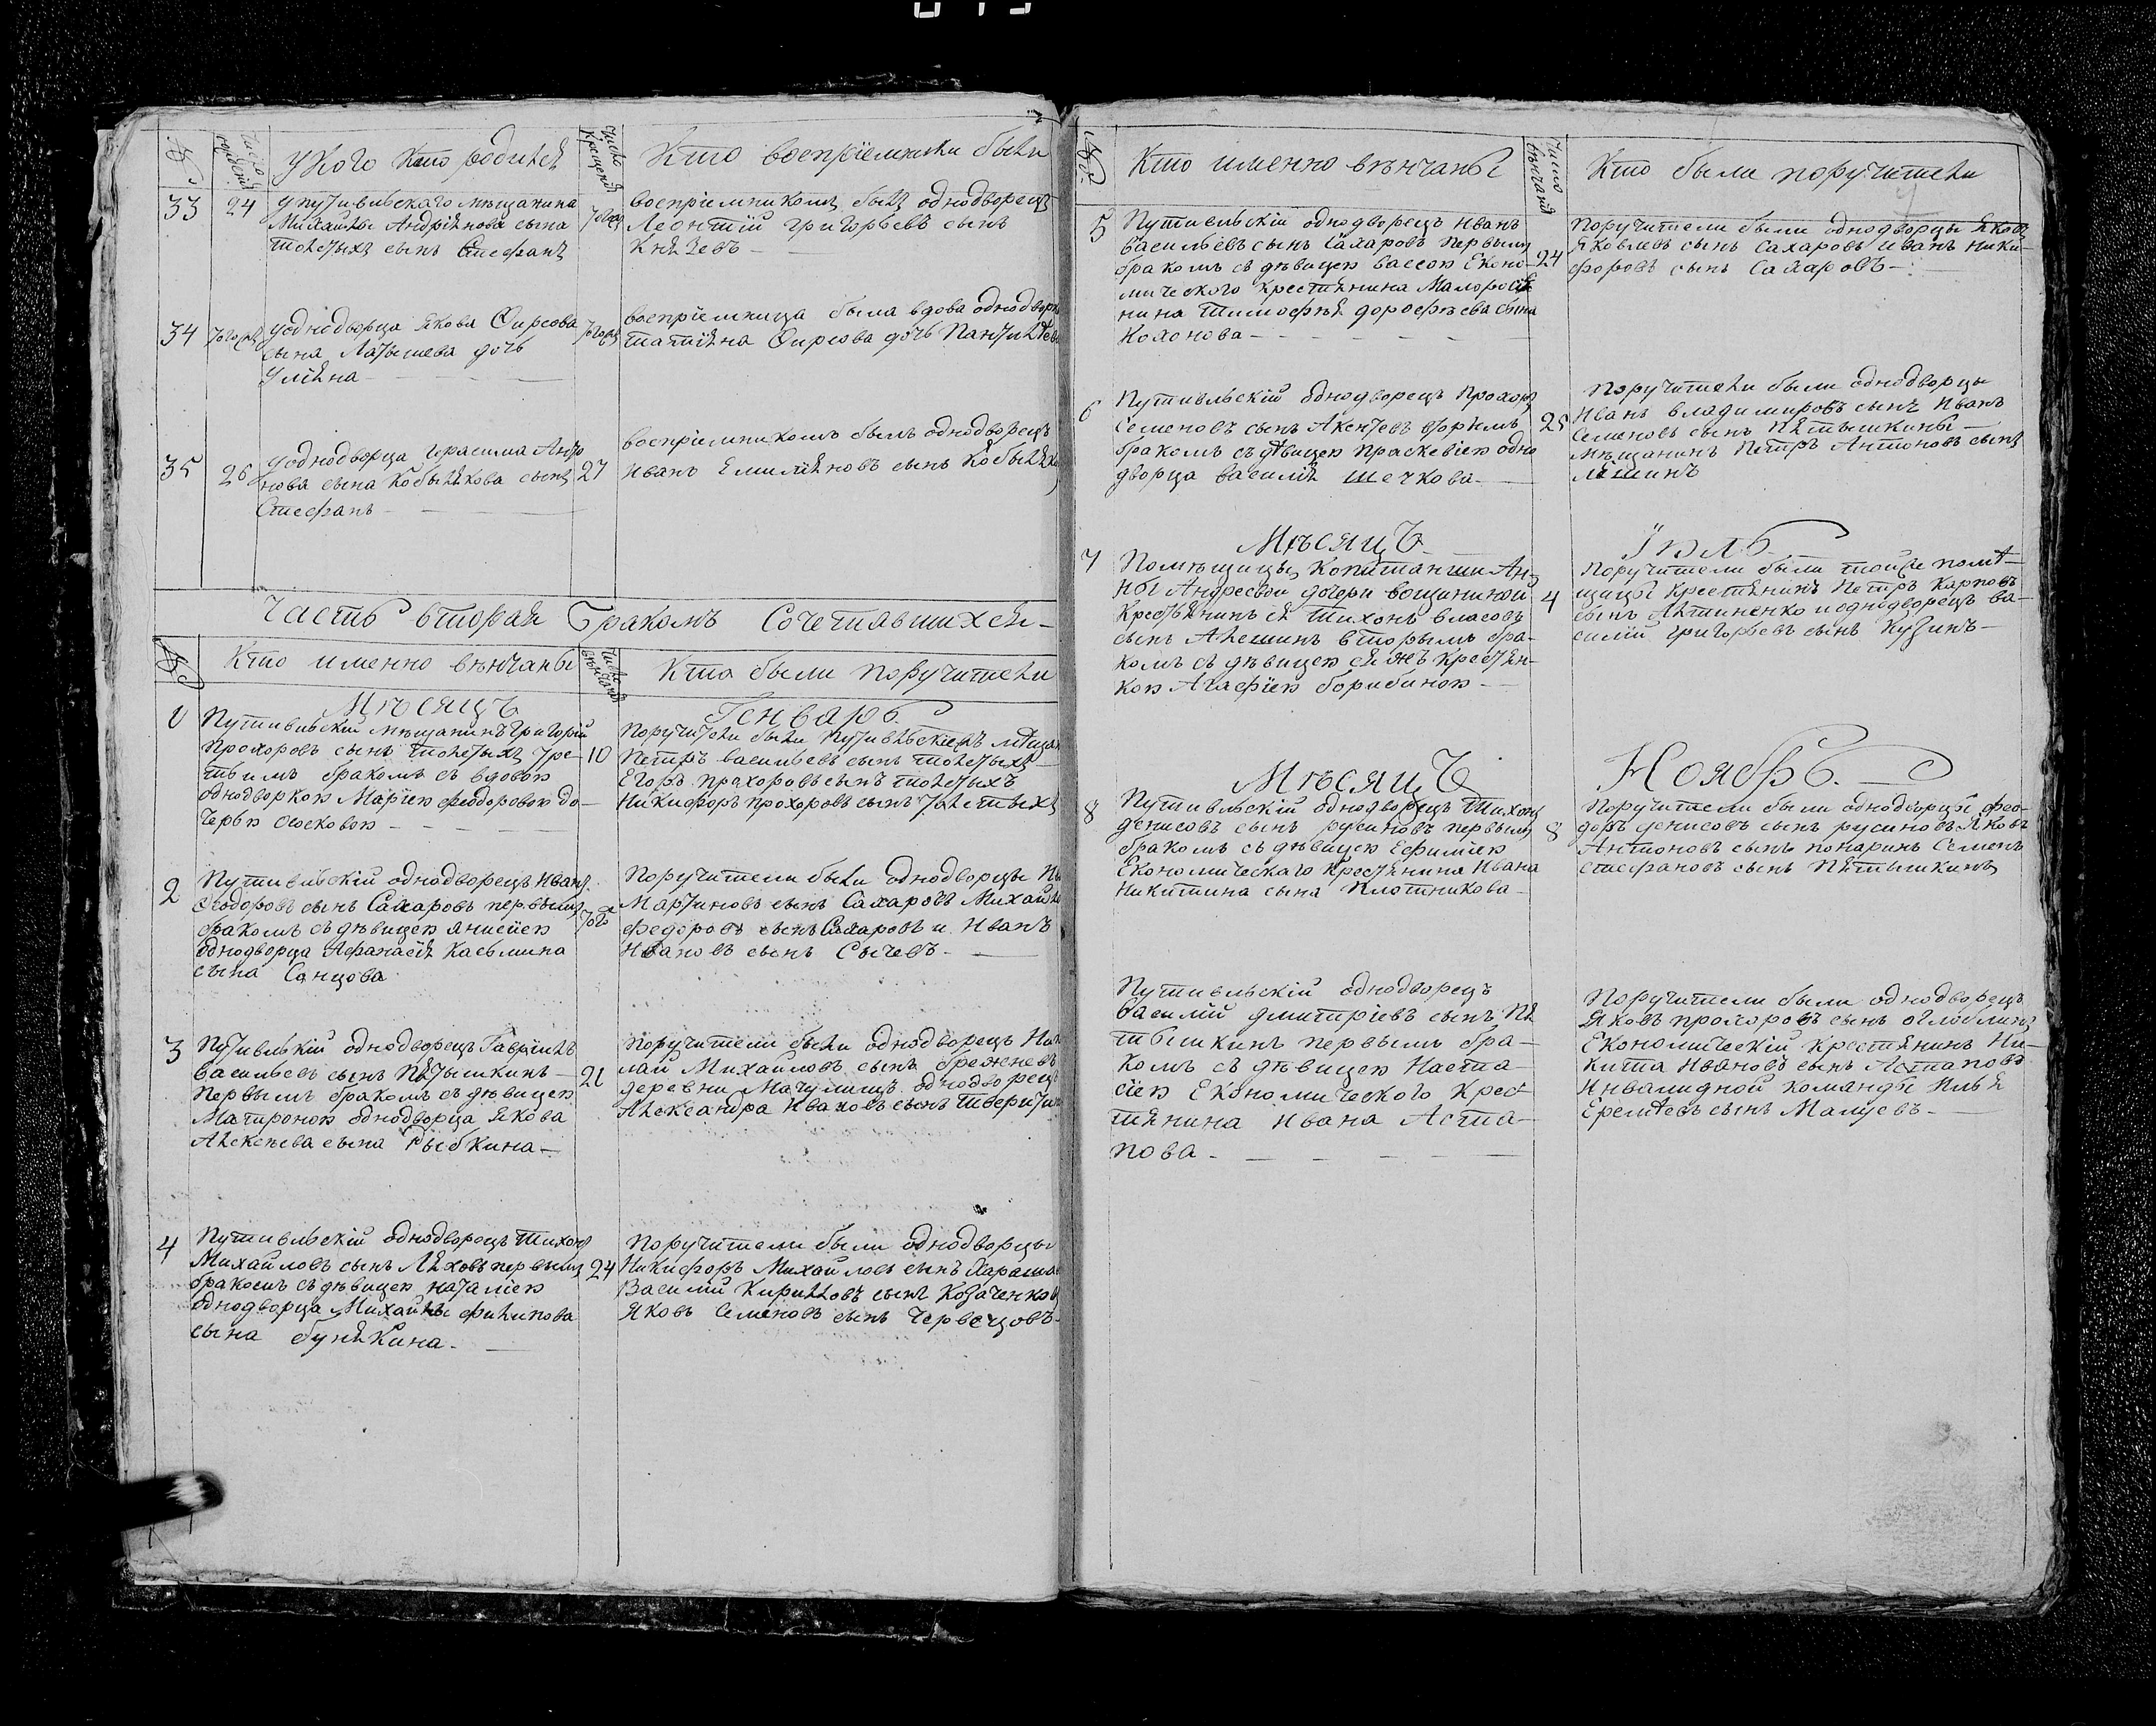 №
число рожденiя
У кого кто родился
число крещенiя
Кто воспрiемники были
33
24
у путивльскаго мѣщанина
Михайлы Андрѣянова сына
толстыхъ сынъ Стефанъ
тогожъ
воспрiемникомъ былъ однодворецъ
Леонтiй григорьевъ сынъ
Князевъ
34
тогожъ
у однодворца якова Фирсова
сына Латышева дочь
Улiяна
тогожъ
воспрiемница была вдова однодворка
татiяна Фирсова дочь
35
26
у однодворца герасима Анто
нова сына Кобылякова сынъ
Стефанъ
27
воспрiемникомъ былъ однодворецъ
Иванъ Емилiяновъ сынъ
Часть вторая Бракомъ Сочетавшихся
№
Кто именно вѣнчаны
число вѣнчанiя
Кто были поручители
Мѣсяцъ
Генварь
1
Путивльскiй мѣщанинъ григорiй
прохоровъ сынъ толстыхъ тре-
тьимъ бракомъ съ вдовою
однодворкою Марiею феодоровою до-
черью
10
поручители были путивльскiе мѣщан
петръ васильевъ сынъ толстыхъ
Егоръ прохоровъ сынъ толстыхъ
Никифоръ прохоровъ сынъ толстыхъ
2
Путивльскiй однодворецъ Иванъ
Фодоровъ сынъ Сахаровъ первымъ
бракомъ съ дѣвицею Анисiею
однодворца Афанасiя Касьмина
сына Санцова
тогожъ
поручители были однодворцы
Мартиновъ сынъ Сахаровъ Михайла
федоровъ сынъ Сахаровъ и Иванъ
Ивановъ сынъ Сычевъ
3
Путивльскiй однодворецъ Гаврiилъ
васильевъ сынъ Пятышкинъ
первымъ бракомъ съ дѣвицею
Матроною однодворца якова
Алексѣева сына Рыбкина
21
поручители были однодворецъ
Михайловъ сынъ брежневъ
деревни Мачулищъ однодворецъ
Александра Ивановъ сынъ
4
Путивльскiй однодворецъ тихонъ
Михайловъ сынъ Ляховъ первымъ
бракомъ съ дѣвицею наталiею
однодворца Михайлы филипова
сына бунякина
24
поручители были однодворцы
Никифоръ Михайловъ сынъ
Василiй Кириловъ сынъ Козаченковъ
яковъ Семеновъ сынъ Червецовъ
№
Кто именно вѣнчаны
число вѣнчанiя
Кто были поручители
5
Путивльскiй однодворецъ Иванъ
васильевъ сынъ Сахаровъ первымъ
бракомъ съ дѣвицею вассою Еконо-
мического крестянина Малоросiя
нина тимофѣя дорофѣева сына
Кохонова
24
поручители были однодворцы яковъ
яковлевъ сынъ Сахаровъ иванъ ники-
форовъ сынъ Сахаровъ
6
Путивльскiй однодворецъ прохоръ
Семеновъ сынъ Аксютовъ вторымъ
бракомъ съ дѣвицею праскевiею одно
дворца василiя шечкова
25
поручители были однодворцы
Иванъ владимировъ сынъ Иванъ
Семеновъ сынъ пятышкины
мѣщанинъ петръ Антоновъ сынъ
лёшинъ
Мѣсяцъ
Iюль
7
Помѣщицы Копитанши Ан-
ны Андреевой дочери вощининой
Крестьянинъ ея тихонъ власовъ
сынъ Алешинъ вторымъ бра-
комъ съ дѣвицею ея жъ крестьян-
кою Агафiею борибиною
4
поручители были тойже помѣ-
щицы крестянинъ петръ карповъ
сынъ и однодворецъ ва-
силiй григорьевъ сынъ Кузинъ
Мѣсяцъ
Ноябрь
8
Путивльскiй однодворецъ тихонъ
денисовъ сынъ русиновъ первымъ
бракомъ съ дѣвицею Ефимiею
Економическаго крестьянина Ивана
Никитина сына плотникова
8
поручители были однодворцы фео-
доръ денисовъ сынъ русиновъ яковъ
Антоновъ сынъ понаринъ Семенъ
стефановъ сынъ пятышкинъ
Путивльскiй однодворецъ
василiй дмитрiевъ сынъ пя
тышкинъ первымъ бра-
комъ съ дѣвицею Наста-
сiею Економического крес
тянина Ивана Аста-
пова
Поручители были однодворецъ
яковъ прохоровъ сынъ оглоблинъ
Економическiй крестянинъ Ни-
кита Ивановъ сынъ Астаповъ
Инвалидной команды Илья
Еремѣевъ сынъ Малцевъ